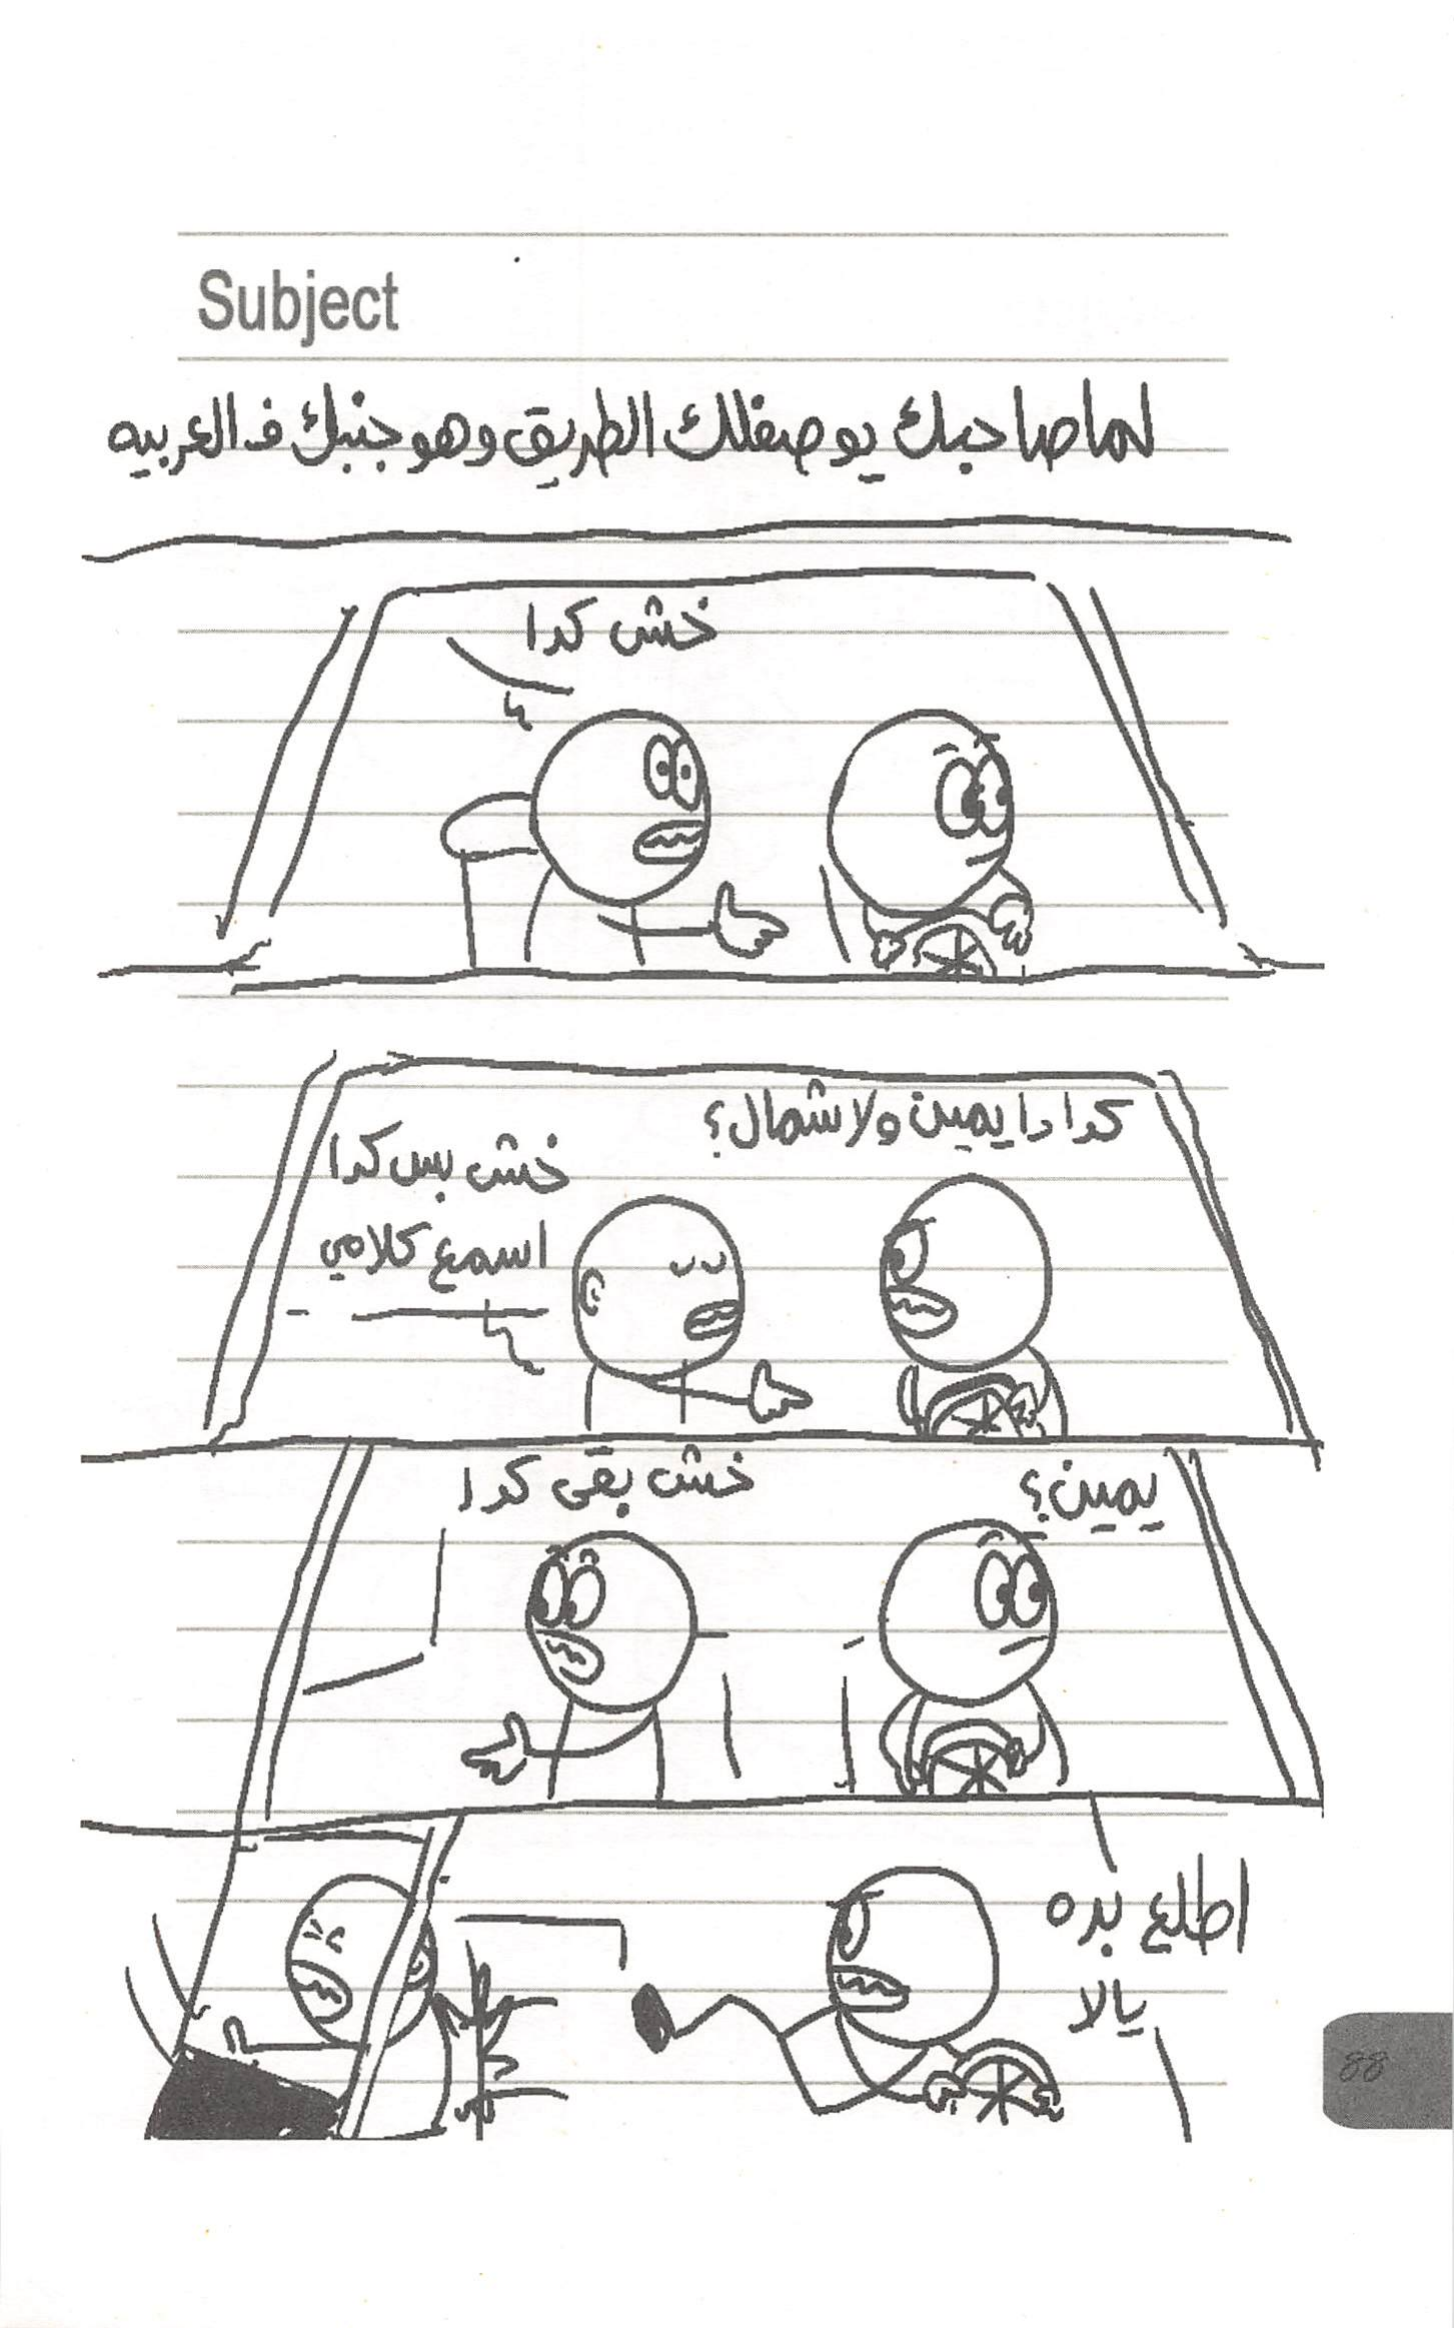 Subject
لما صاحبك يوصفلك الطريق وهو جنبك ف العربيه
خش كدا
كدا دا يمين ولا شمال؟
خش بس كدا
اسمع كلامي
يمين؟
خش بقى كدا
اطلع بره
يالا
88